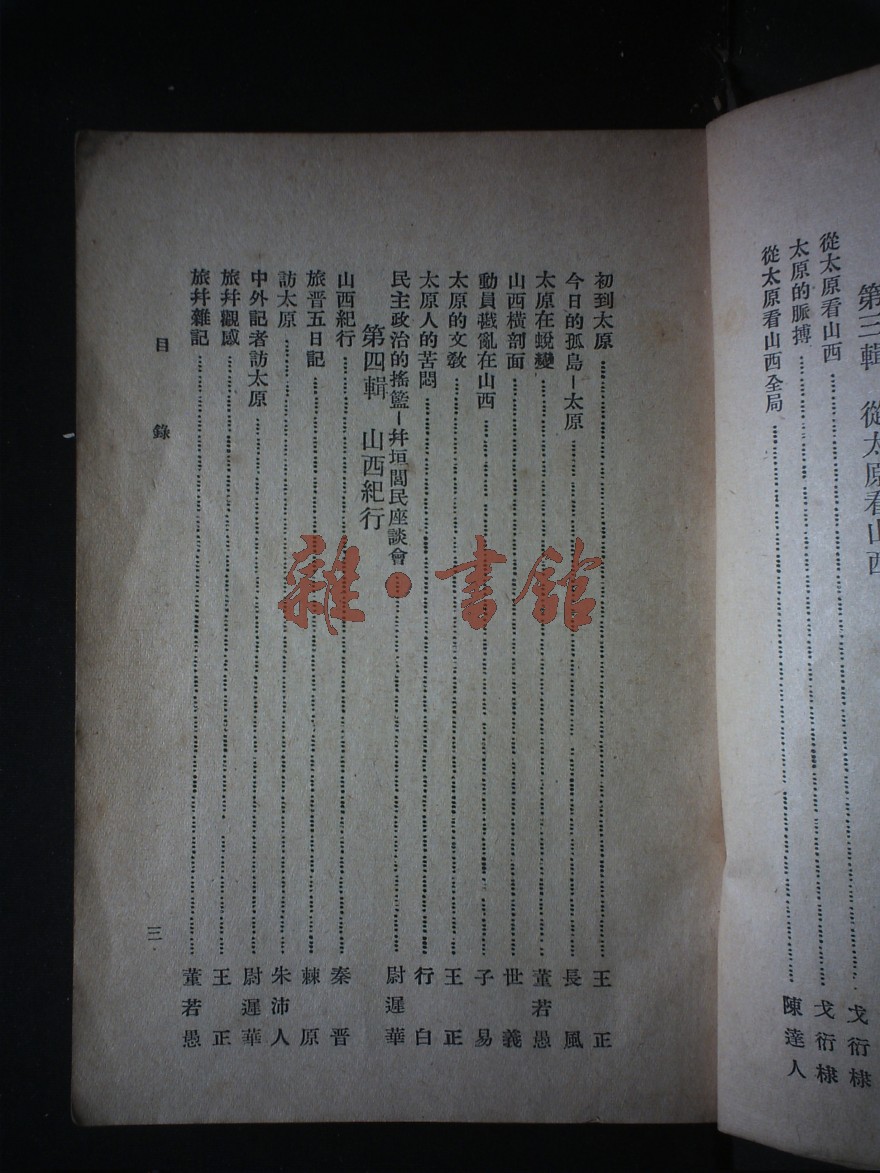 第三輯 從太原看山西
從太原看山西 戈衍棣
太原的脈搏 戈衍棣
從太原看山西全局 陳達人
初到太原 王正
今日的孤島－太原 長風
太原在蛻變 董若愚
山西橫剖面 世義
動員戡亂在山西 子易
太原的文教 王正
太原人的苦悶 行白
民主政治的搖籃－幷垣閻民座談會 尉遲華
第四輯 山西紀行
山西紀行 秦晋
旅晋五日記 棘原
訪太原 朱沛人
中外記者訪太原 尉遲華
旅幷觀感 王正
旅幷雜記 董若愚
目錄 三
雜·書館